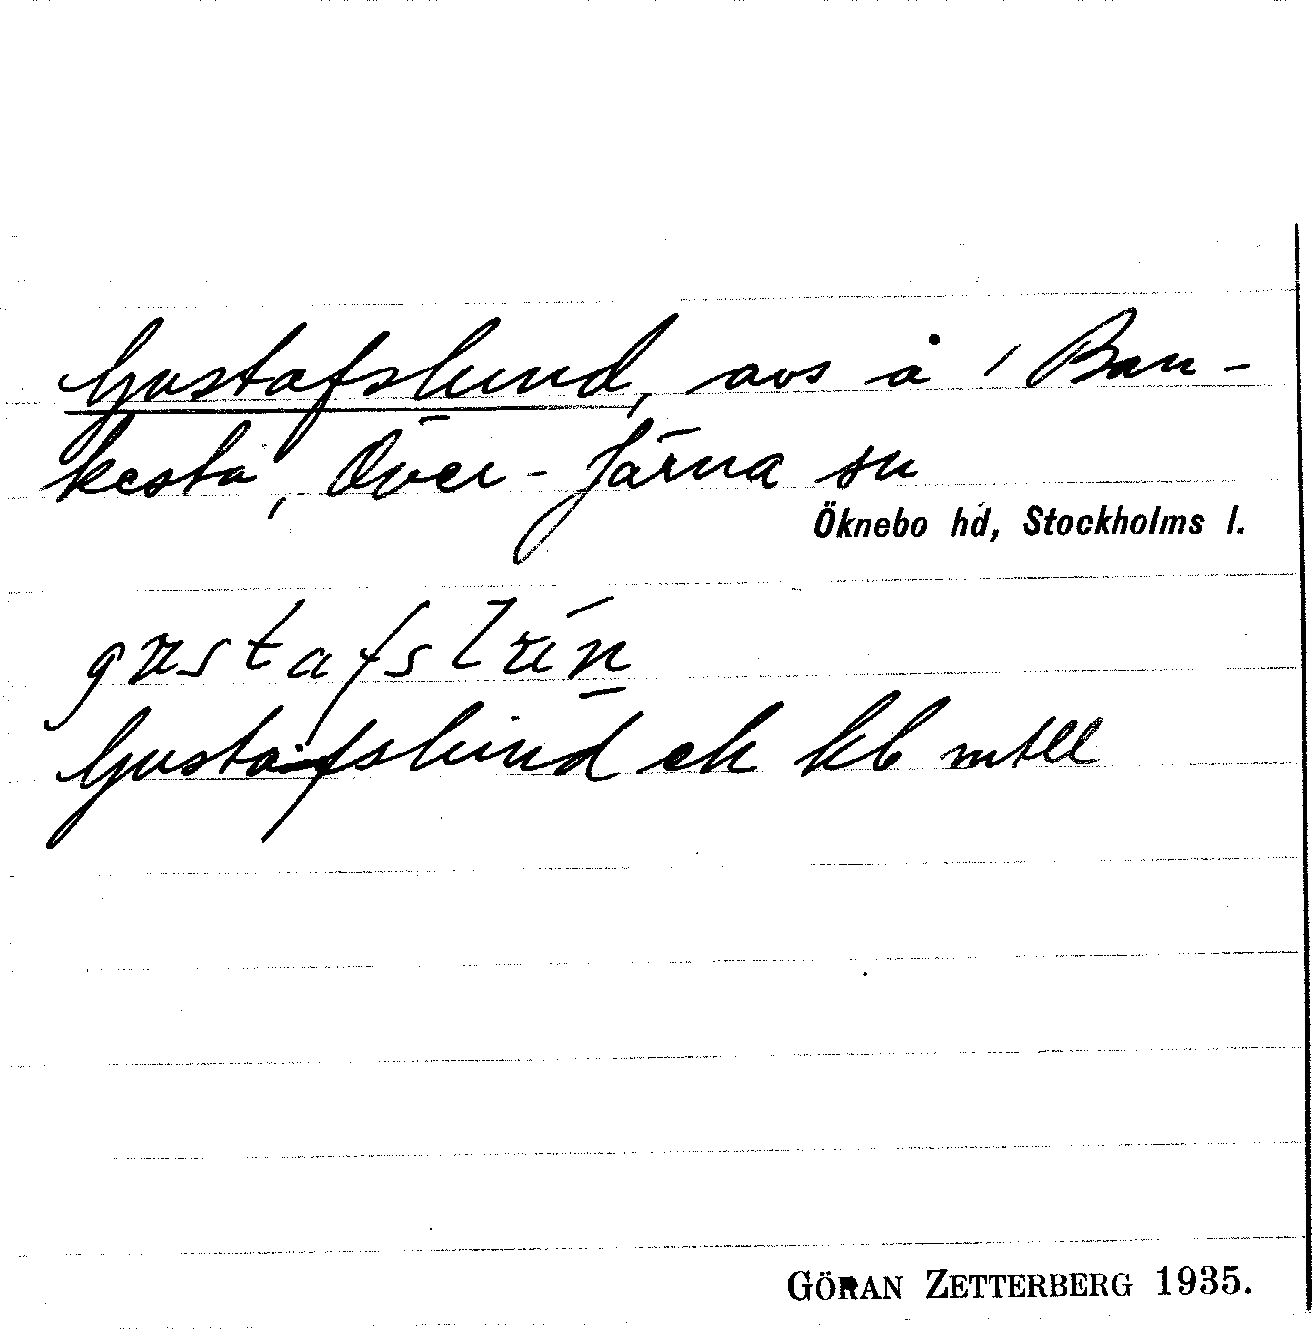 Gustafslund, avs å ' Ban-
kesta, Över-Järna sn
Öknebo hd, Stockholms l.
gustafslún
Gustafslund ek kb mtll
GÖRAN ZETTERBERG 1935.